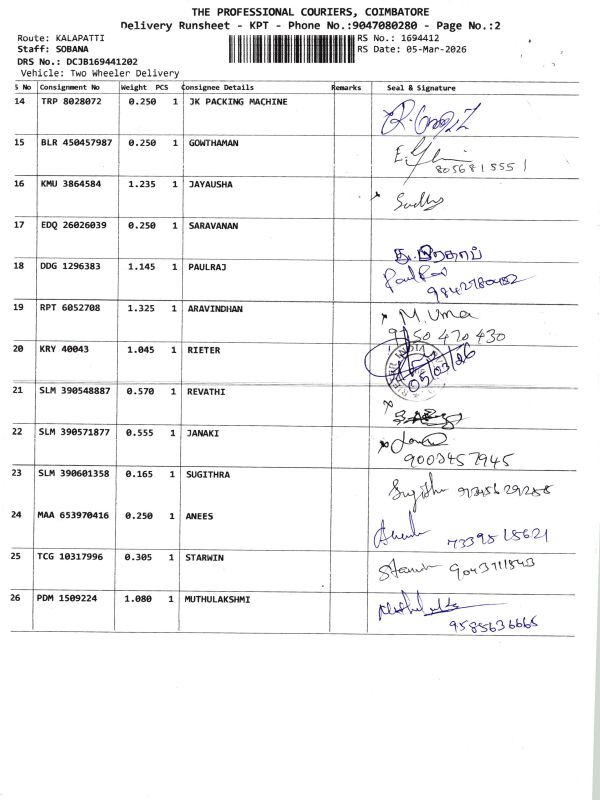 THE PROFESSIONAL COURIERS, COIMBATORE
Delivery Runsheet - KPT - Phone No.:9047080280 - Page No.:2
Route: KALAPATTI RS No.: 1694412
Staff: SOBANA RS Date: 05-Mar-2026
DRS No.: DCJB169441202
Vehicle: Two Wheeler Delivery
S No Consignment No Weight PCS Consignee Details Remarks Seal & Signature
14 TRP 8028072 0.250 1 JK PACKING MACHINE
15 BLR 450457987 0.250 1 GOWTHAMAN
8056815551
16 KMU 3864584 1.235 1 JAYAUSHA
Sudha
17 EDQ 26026039 0.250 1 SARAVANAN
18 DDG 1296383 1.145 1 PAULRAJ
PaulRaj
19 RPT 6052708 1.325 1 ARAVINDHAN
M. Uma
9150470430
20 KRY 40043 1.045 1 RIETER
05/03/26
21 SLM 390548887 0.570 1 REVATHI
22 SLM 390571877 0.555 1 JANAKI
9003457945
23 SLM 390601358 0.165 1 SUGITHRA
24 MAA 653970416 0.250 1 ANEES
7339515621
25 TCG 10317996 0.305 1 STARWIN
26 PDM 1509224 1.080 1 MUTHULAKSHMI
9585636665